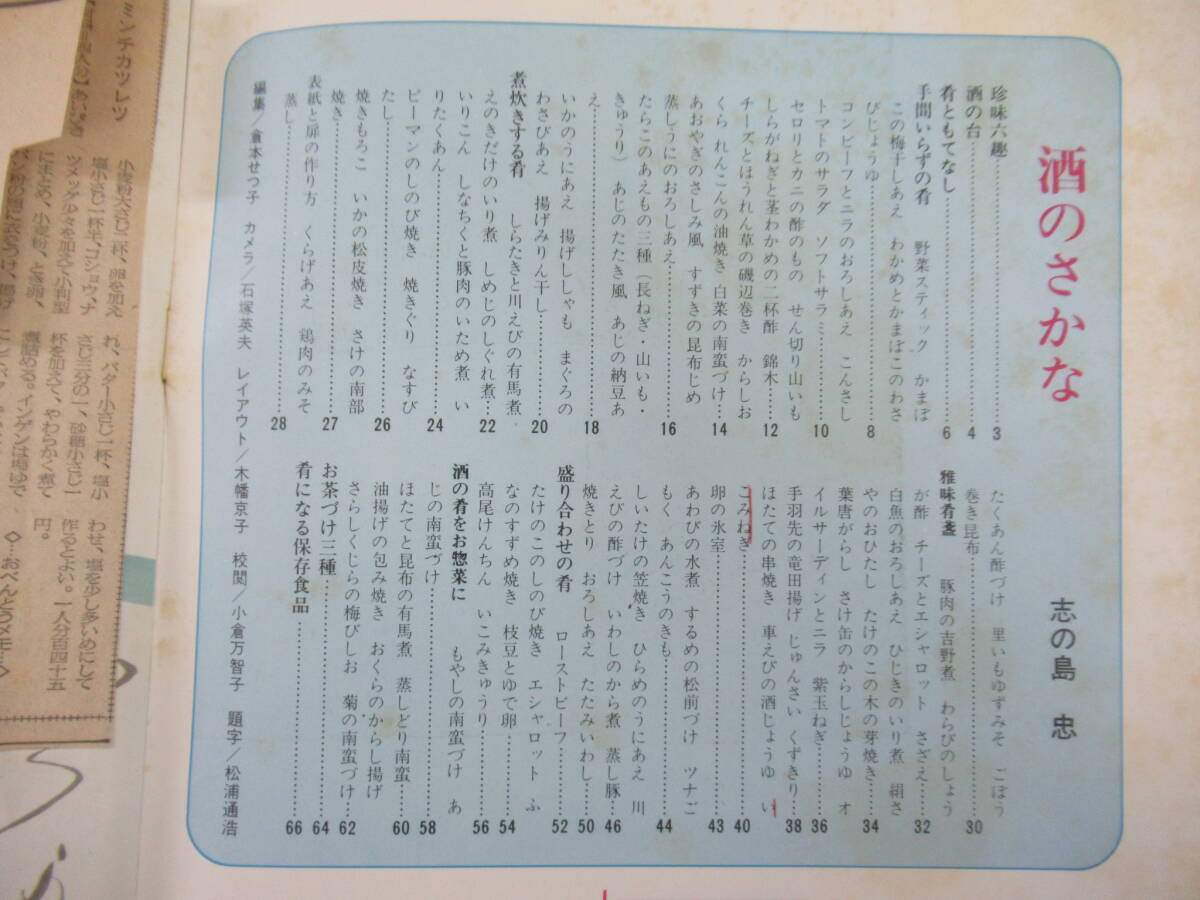 酒のさかな
志の島 忠
珍味六趣 3
酒の台 4
肴ともてなし 6
手間いらずの肴 野菜スティック かまぼ
この梅干しあえ わかめとかまぼこのわさ
びじょうゆ 8
コンビーフとニラのおろしあえ こんさし
トマトのサラダ ソフトサラミ 10
セロリとカニの酢のもの せん切り山いも
しらがねぎと茎わかめの二杯酢 錦木 12
チーズとほうれん草の磯辺巻き からしお
くら れんこんの油焼き 白菜の南蛮づけ 14
あおやぎのさしみ風 すずきの昆布じめ
蒸しうにのおろしあえ 16
たらこのあえもの三種(長ねぎ・山いも・
きゅうり) あじのたたき風 あじの納豆あ
え 18
いかのうにあえ 揚げししゃも まぐろの
わさびあえ 揚げみりん干し 20
煮炊きする肴 しらたきと川えびの有馬煮
えのきだけのいり煮 しめじのしぐれ煮 22
いりこん しなちくと豚肉のいため煮 い
りたくあん 24
ピーマンのしのび焼き 焼きぐり なすび
たし 26
焼きもろこ いかの松皮焼き さけの南部
焼き 27
表紙と扉の作り方 くらげあえ 鶏肉のみそ
蒸し 28
たくあん酢づけ 里いもゆずみそ ごぼう
巻き昆布 30
雅味肴盞 豚肉の吉野煮 わらびのしょう
が酢 チーズとエシャロット さざえ 32
白魚のおろしあえ ひじきのいり煮 絹さ
やのおひたし たけのこの木の芽焼き 34
葉唐がらし さけ缶のからしじょうゆ オ
イルサーディンとニラ 紫玉ねぎ 36
手羽先の竜田揚げ じゅんさい くずきり 38
ほたての串焼き 車えびの酒じょうゆ い
こみねぎ 40
卵の氷室 43
あわびの水煮 するめの松前づけ ツナご
もく あんこうのきも 44
しいたけの笠焼き ひらめのうにあえ 川
えびの酢づけ いわしのから煮 蒸し豚 46
焼きとり おろしあえ たたみいわし 50
盛り合わせの肴 ローストビーフ 52
たけのこのしのび焼き エシャロット ふ
なのすずめ焼き 枝豆とゆで卵 54
高尾けんちん いこみきゅうり 56
酒の肴をお惣菜に もやしの南蛮づけ あ
じの南蛮づけ 58
ほたてと昆布の有馬煮 蒸しどり南蛮 60
油揚げの包み焼き おくらのからし揚げ
さらしくじらの梅びしお 菊の南蛮づけ 62
お茶づけ三種 64
肴になる保存食品 66
編集/倉本せつ子 カメラ/石塚英夫 レイアウト/木幡京子 校閲/小倉万智子 題字/松浦通浩
ミンチカツレツ
小麦粉大さじ一杯、卵を加え
塩小さじ一杯半、コショウ、ナ
ツメッグ少々を加えて小判型
にまとめ、小麦粉、とき卵、
れ、バター小さじ一杯、塩小
さじ三分の一、砂糖小さじ一
杯を加えて、やわらかく煮て
煮詰める。インゲンは塩ゆで
わせ、塩を少し多いめにして
作るとよい。一人分百四十五
円。
◇…おべんとうメモ…◇